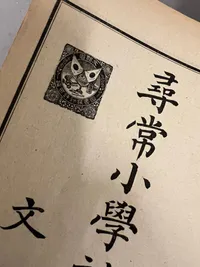 尋常小學
文